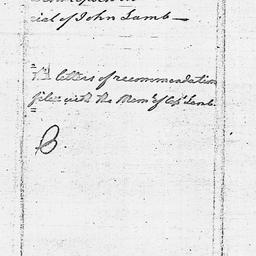 rial of John Lamb —
The letters of recommendation
filed with the Mem.l of Cap.t Lamb.
B.